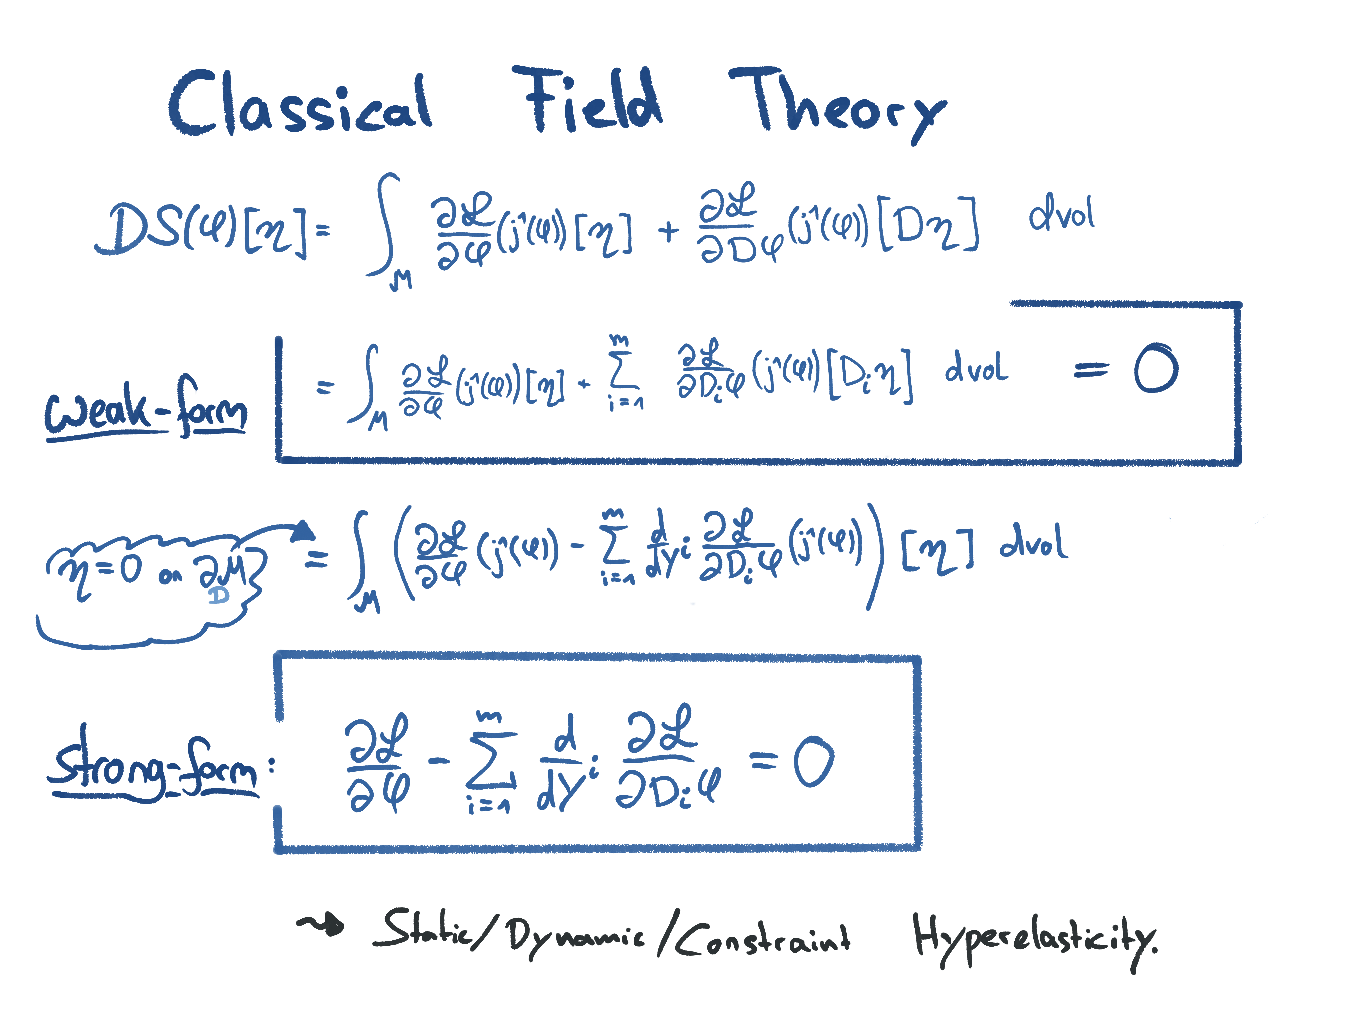 Classical Field Theory
DS(φ)[η] = ∫_M ∂ℒ/∂φ (j¹(φ))[η] + ∂ℒ/∂Dφ (j¹(φ))[Dη] dvol
weak-form = ∫_M ∂ℒ/∂φ (j¹(φ))[η] + ∑_{i=1}^m ∂ℒ/∂D_iφ (j¹(φ))[D_iη] dvol = 0
(η=0 on ∂M_D) = ∫_M (∂ℒ/∂φ (j¹(φ)) - ∑_{i=1}^m d/dY^i ∂ℒ/∂D_iφ (j¹(φ))) [η] dvol
strong-form: ∂ℒ/∂φ - ∑_{i=1}^m d/dY^i ∂ℒ/∂D_iφ = 0
⇝ Static/Dynamic/Constraint Hyperelasticity.